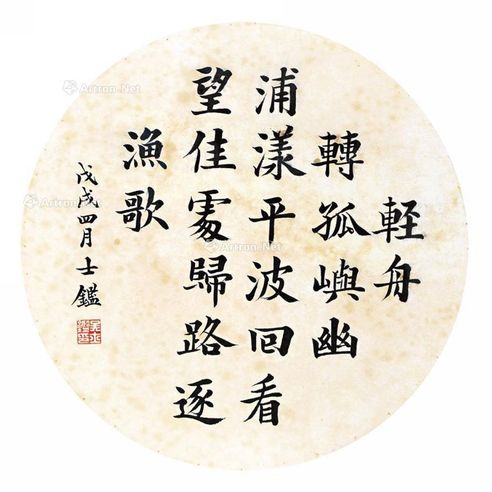 輕舟
轉孤嶼幽
浦漾平波回看
望佳處歸路逐
漁歌
戊戌四月士鑑
Artron.Net
Artron.Net
Artron.Net